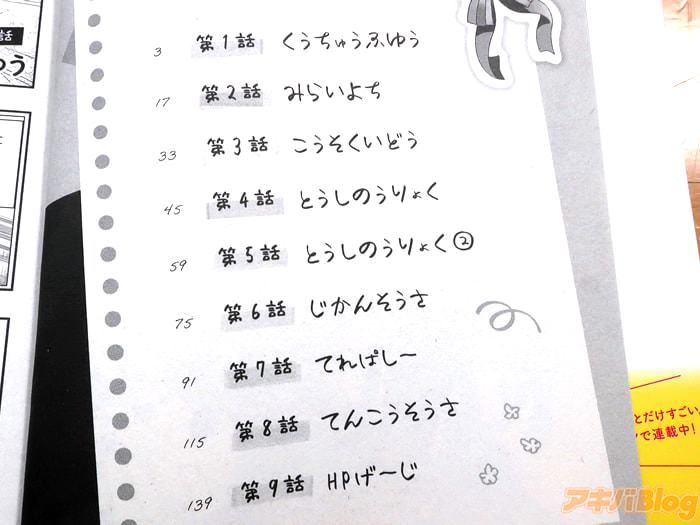 話
ゅう
3 第1話 くうちゅうふゆう
17 第2話 みらいよち
33 第3話 こうそくいどう
45 第4話 とうしのうりょく
59 第5話 とうしのうりょく②
75 第6話 じかんそうさ
91 第7話 てれぱし〜
115 第8話 てんこうそうさ
139 第9話 HPげ〜じ
とだけすごい
で連載中!
アキバBlog